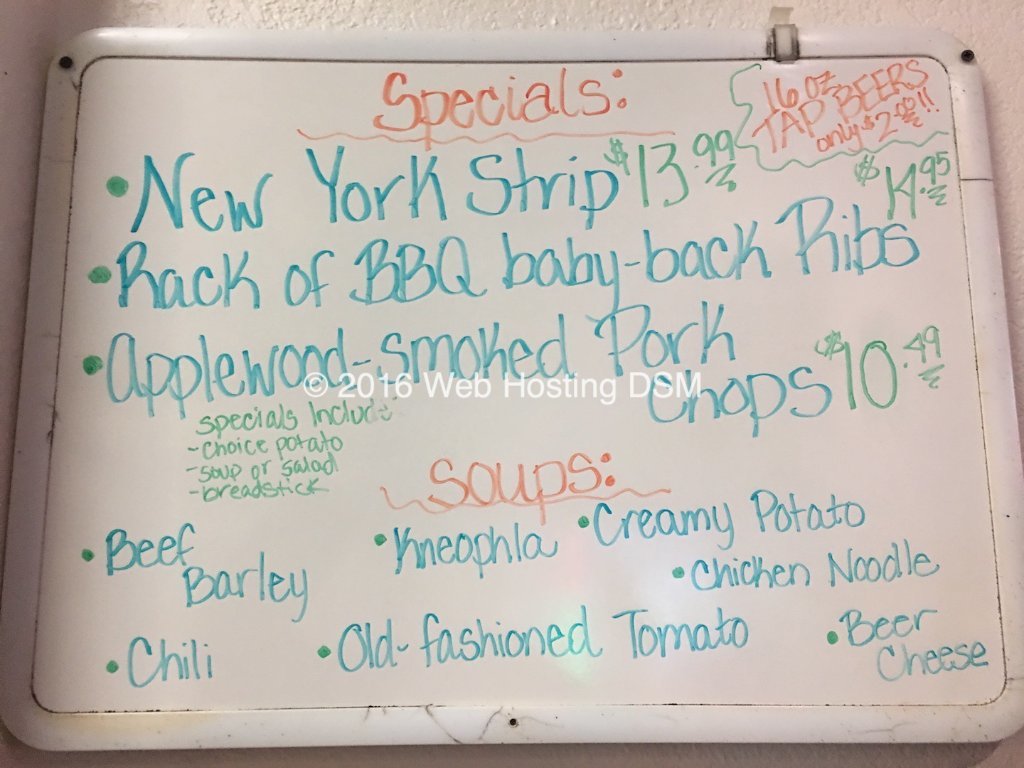 Specials:
16 oz
TAP BEERS
only $2.00!!
• New York Strip $13.99
$14.95
• Rack of BBQ baby-back Ribs
• Applewood-smoked Pork
Chops $10.49
© 2016 Web Hosting DSM
Specials Include:
- choice potato
- soup or salad
- breadstick
Soups:
• Beef
Barley
• Kneophla
• Creamy Potato
• Chicken Noodle
• Chili
• Old-fashioned Tomato
• Beer
Cheese